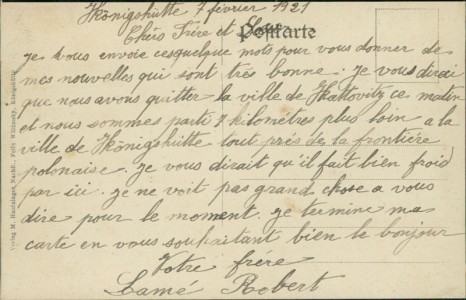 Königshütte 7 février 1921
Chers Frère et Sœur
Postkarte
je vous envoie cesquelque mots pour vous donner de
mes nouvelles qui sont très bonne. je vous dirai
que nous avons quitter la ville de Kattovitz ce matin
et nous sommes parti 7 kilomètres plus loin a la
ville de Königshütte tout prés de la frontière
polonaise. je vous dirait qu'il fait bien frois
par ici. je ne voit pas grand chose a vous
dire pour le moment. je termine ma
carte en vous souhaitant bien le bonjour
Votre frere
Lamé Robert
Verlag M. Nachf., Felix Königshütte